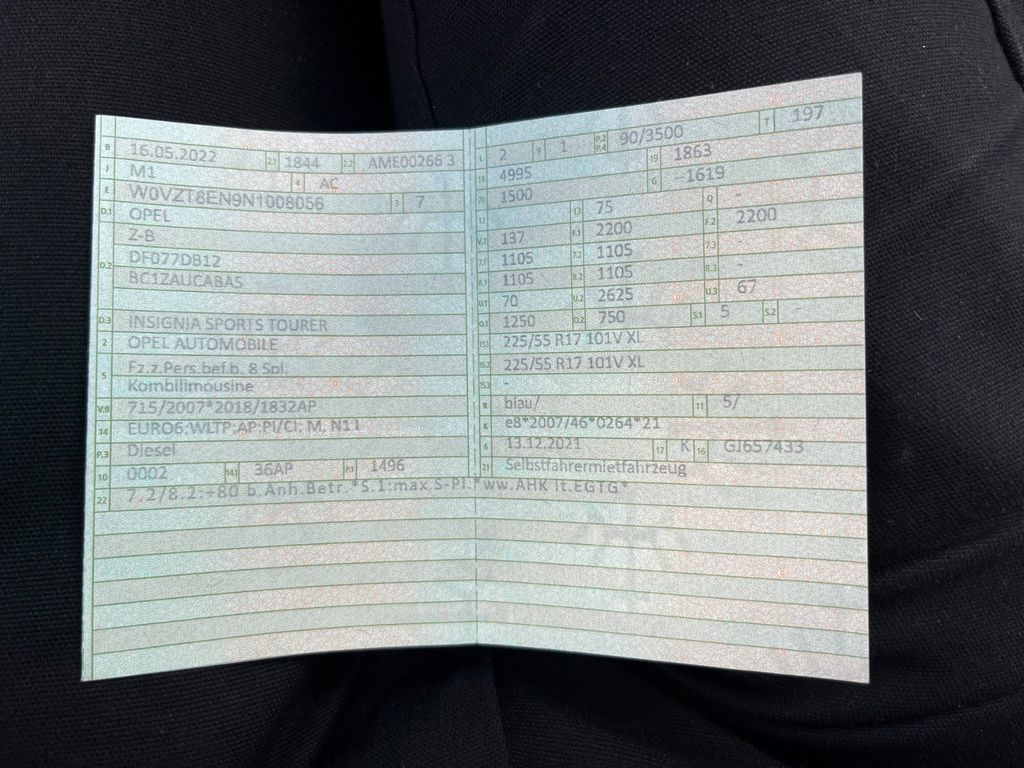 B 16.05.2022 2.1 1844 2.2 AME00266 3
J M1 4 AC
E W0VZT8EN9N1008056 3 7
D.1 OPEL
Z-B
D.2 DF077DB12
BC1ZAUCABAS
D.3 INSIGNIA SPORTS TOURER
2 OPEL AUTOMOBILE
5 Fz.z.Pers.bef.b. 8 Spl.
Kombilimousine
V.9 715/2007*2018/1832AP
14 EURO6;WLTP;AP;PI/CI; M, N1 I
P.3 Diesel
10 0002 14.1 36AP P.1 1496
L 2 9 1 P.2 P.4 90/3500 T 197
18 4995 19 1863
20 1500 G --1619
12 - 13 75 Q -
V.7 137 F.1 2200 F.2 2200
7.1 1105 7.2 1105 7.3 -
8.1 1105 8.2 1105 8.3 -
U.1 70 U.2 2625 U.3 67
O.1 1250 O.2 750 S.1 5 S.2 -
15.1 225/55 R17 101V XL
15.2 225/55 R17 101V XL
15.3 -
R blau/ 11 5/
K e8*2007/46*0264*21
6 13.12.2021 17 K 16 GJ657433
21 Selbstfahrermietfahrzeug
22 7.2/8.2:+80 b.Anh.Betr.*S.1:max.S-Pl.*ww.AHK lt.EGTG*